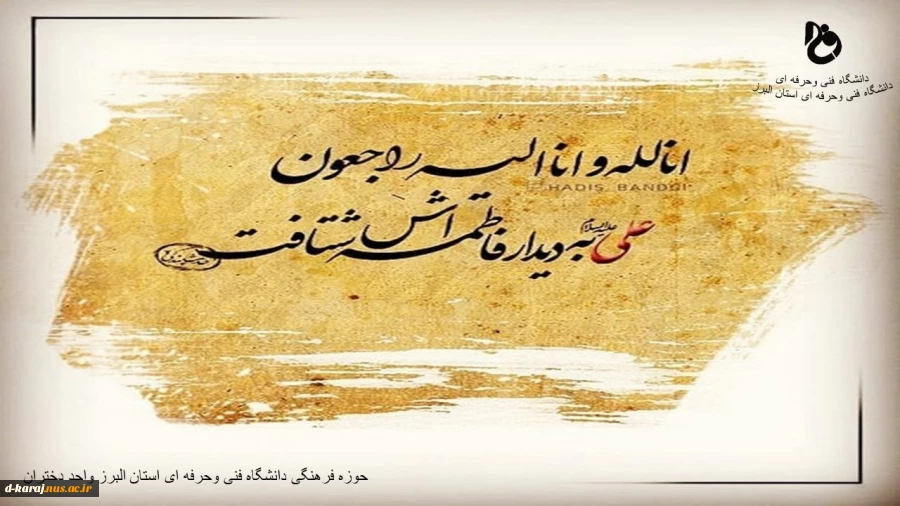 دانشگاه فنی وحرفه ای
دانشگاه فنی وحرفه ای استان البرز
انا لله و انا الیه راجعون
HADIS_BANDGI
علی علیه‌السلام به دیدار فاطمه اش شتافت
حوزه فرهنگی دانشگاه فنی وحرفه ای استان البرز واحد دختران
d-karaj.nus.ac.ir